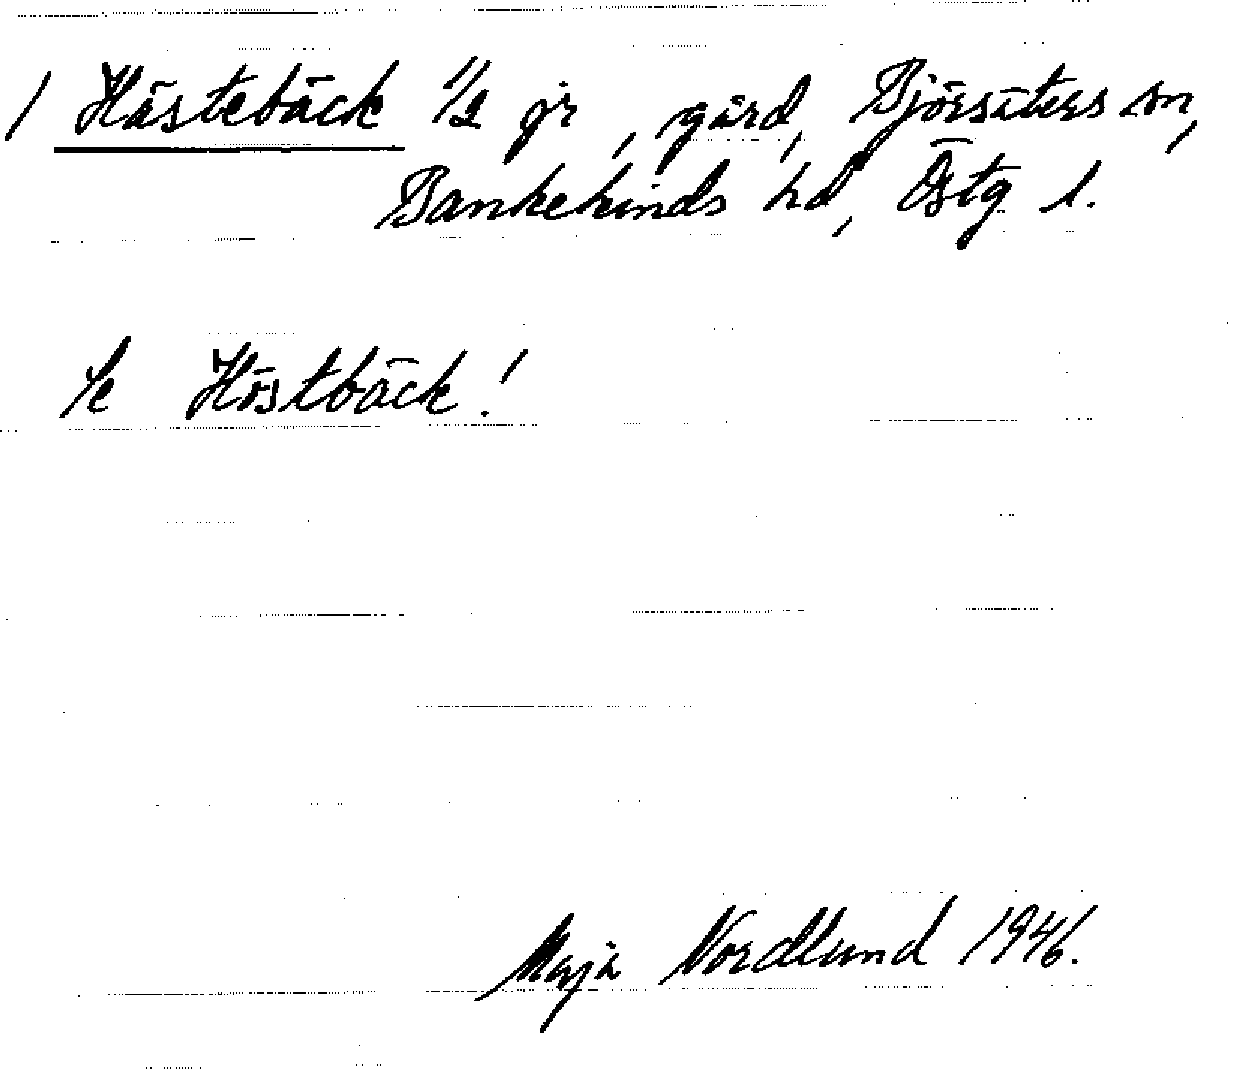 / Hästebäck 1/2 gr, gård, Björsäters sn,
Bankekinds hd, Östg l.
Se Höstbäck!
Maja Nordlund 1946.